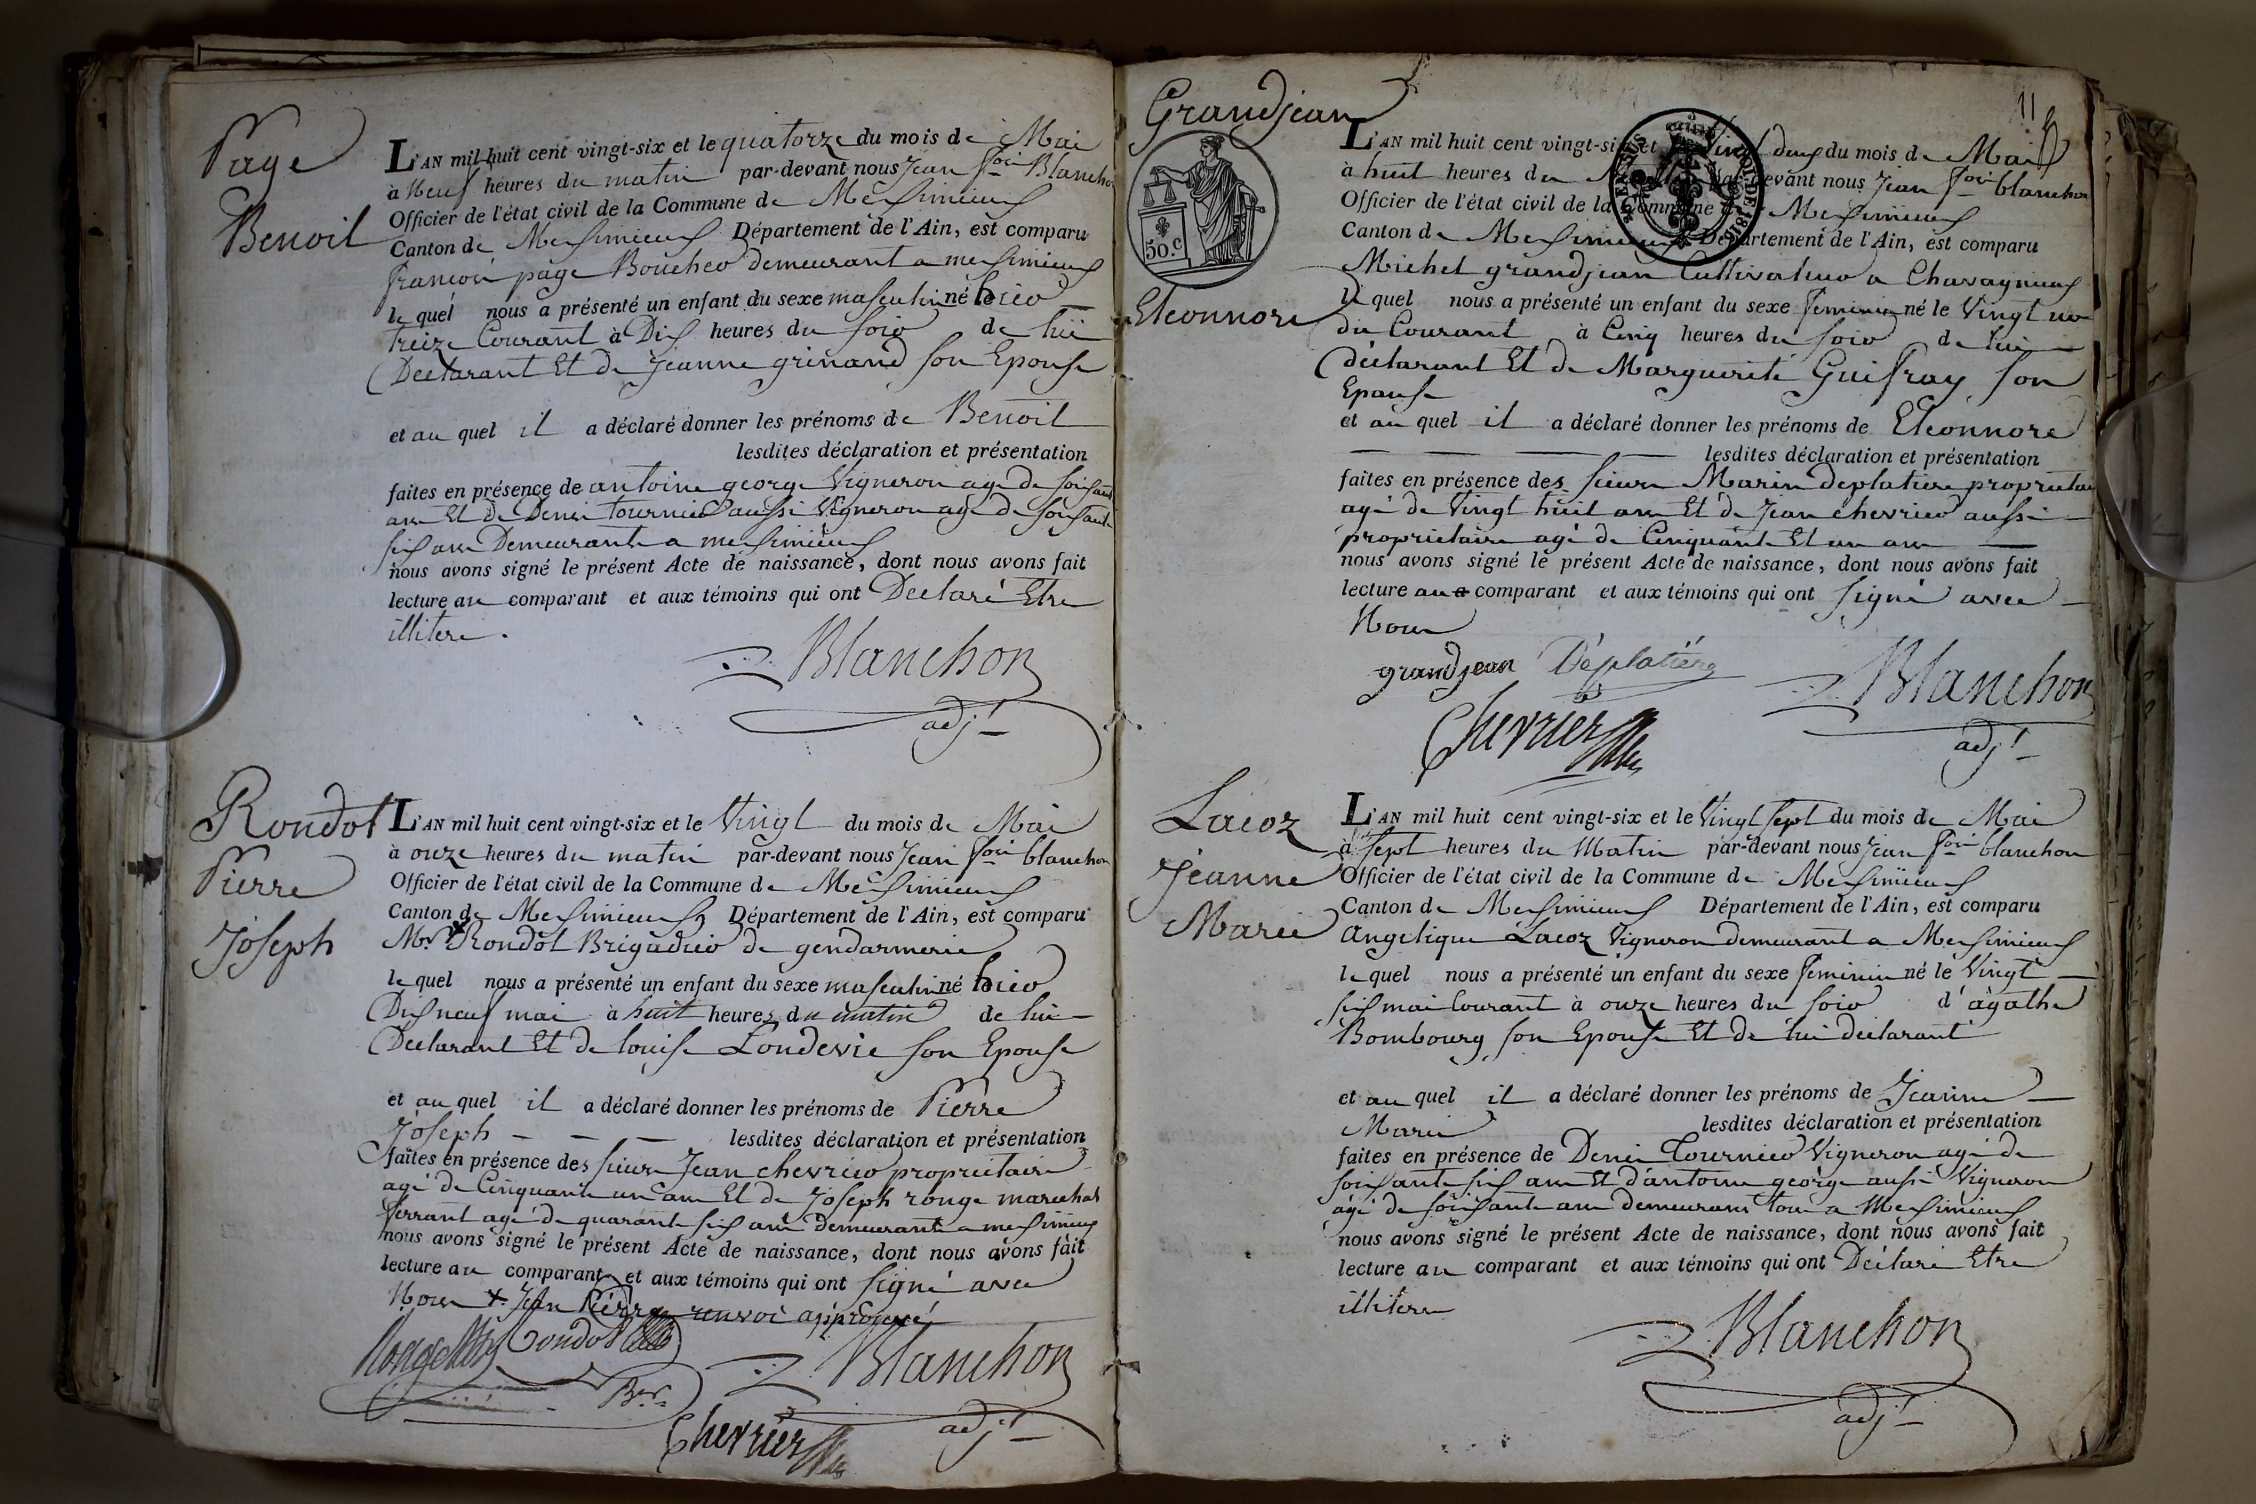 Page
Benoit
L'AN mil huit cent vingt-six et le quatorze du mois de Mai
à Neuf heures du matin par-devant nous Jean fois Blanchon
Officier de l'état civil de la Commune de Messimieux
Canton de Messimieux Département de l'Ain, est comparu
françois page Boucher demeurant a messimieux
le quel nous a présenté un enfant du sexe masculin né hier
treize Courant à Dix heures du soir de lui
Declarant Et de Jeanne grinand son Epouse
et au quel il a déclaré donner les prénoms de Benoit
lesdites déclaration et présentation
faites en présence de antoine george Vigneron agé de soixante
ans Et de Denis tournier aussi Vigneron agé de soixante
six ans Demeurants a messimieux
nous avons signé le présent Acte de naissance, dont nous avons fait
lecture au comparant et aux témoins qui ont Declaré Etre
illitere.
Blanchon
adjt
Rondot
Pierre
Joseph
L'AN mil huit cent vingt-six et le Vingt du mois de Mai
à onze heures du matin par-devant nous Jean fois blanchon
Officier de l'état civil de la Commune de Messimieux
Canton de Messimieux Département de l'Ain, est comparu
Mr + Rondot Brigadier de gendarmerie
le quel nous a présenté un enfant du sexe masculin né hier
Dix neuf mai à huit heures du matin de lui
Declarant Et de louise Londevie son Epouse
et au quel il a déclaré donner les prénoms de Pierre
Joseph lesdites déclaration et présentation
faites en présence des sieurs Jean chevrier propriétaire
agé de Cinquante un ans Et de Joseph ronge marechal
ferrant agé de quarante six ans Demeurants a messimieux
nous avons signé le présent Acte de naissance, dont nous avons fait
lecture au comparant et aux témoins qui ont signé avec
Nous + Jean Pierre renvoi approuvé
Ronge Rondot
Br.
Blanchon
adjt
Chevrier
11
Grandjean
50.c
Eleonnore
L'AN mil huit cent vingt-six et le Vingt deux du mois de Mai
à huit heures du Matin par-devant nous Jean fois blanchon
Officier de l'état civil de la Commune de Messimieux
Canton de Messimieux Département de l'Ain, est comparu
Michel grandjean Cultivateur a Chavagnieux
le quel nous a présenté un enfant du sexe feminin né le Vingt un
du Courant à Cinq heures du soir de lui
déclarant Et de Marguerite Guifray son
Epouse
et au quel il a déclaré donner les prénoms de Eleonnore
lesdites déclaration et présentation
faites en présence des sieurs Marin deplatiere propriétaire
agé de Vingt huit ans Et de Jean chevrier aussi
propriétaire agé de Cinquante Et un ans
nous avons signé le présent Acte de naissance, dont nous avons fait
lecture au comparant et aux témoins qui ont signé avec
Nous
grandjean Déplatière
Blanchon
Chevrier
adjt
Lacoz
Jeanne
Marie
L'AN mil huit cent vingt-six et le Vingt sept du mois de Mai
à sept heures du Matin par-devant nous Jean fois blanchon
Officier de l'état civil de la Commune de Messimieux
Canton de Messimieux Département de l'Ain, est comparu
Angelique Lacoz Vigneron demeurant a Messimieux
le quel nous a présenté un enfant du sexe feminin né le Vingt
six mai Courant à onze heures du soir d'agathe
Bombourg son Epouse Et de lui declarant
et au quel il a déclaré donner les prénoms de Jeanne
Marie lesdites déclaration et présentation
faites en présence de Denis Tournier Vigneron agé de
soixante six ans Et d'antoine george aussi Vigneron
agé de soixante ans demeurans tous a Messimieux
nous avons signé le présent Acte de naissance, dont nous avons fait
lecture au comparant et aux témoins qui ont Déclaré Etre
illiteres
Blanchon
adjt